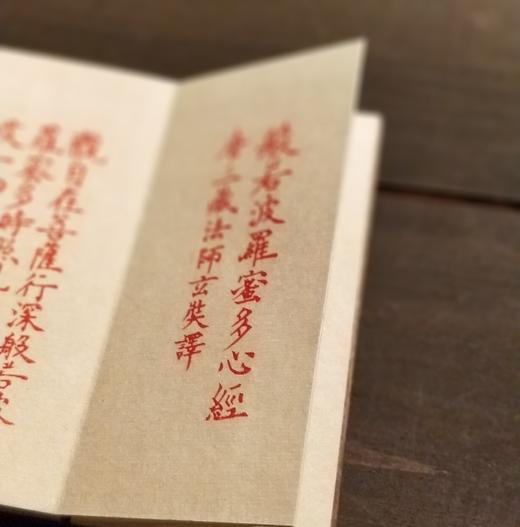 般若波羅蜜多心經
唐三藏法師玄奘譯
觀自在菩薩行深般若波
羅蜜多時照見